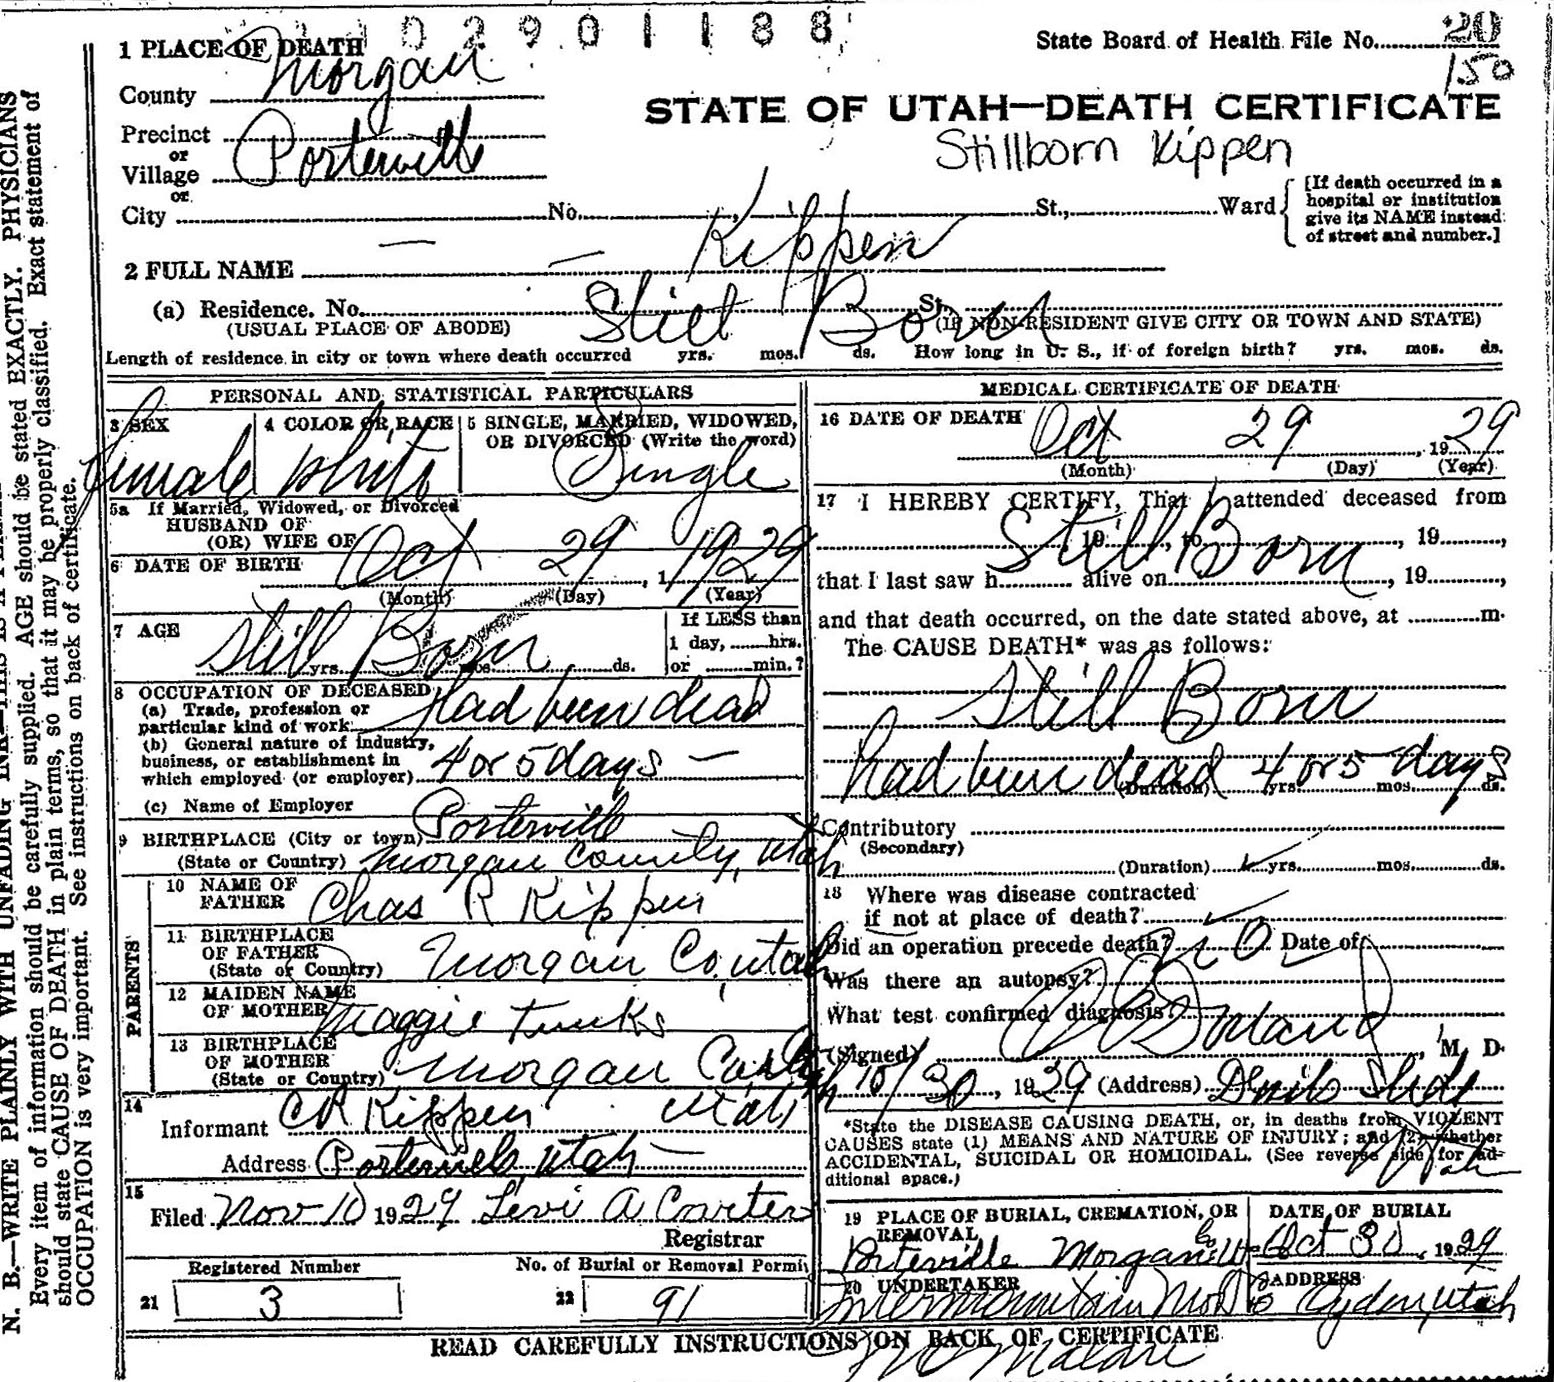 2 9 0 1 1 8 8
1 PLACE OF DEATH
State Board of Health File No. 20
150
County Morgan
STATE OF UTAH—DEATH CERTIFICATE
Precinct
or
Village Porterville
or
Stillborn Kippen
City No. St., Ward
[If death occurred in a
hospital or institution
give its NAME instead
of street and number.]
2 FULL NAME — — Kippen
(a) Residence. No. Still Born St.
(USUAL PLACE OF ABODE) (IF NON-RESIDENT GIVE CITY OR TOWN AND STATE)
Length of residence in city or town where death occurred yrs. mos. ds. How long in U. S., if of foreign birth? yrs. mos. ds.
PERSONAL AND STATISTICAL PARTICULARS
3 SEX female
4 COLOR OR RACE white
5 SINGLE, MARRIED, WIDOWED,
OR DIVORCED (Write the word)
Single
5a If Married, Widowed, or Divorced
HUSBAND OF
(OR) WIFE OF
6 DATE OF BIRTH Oct 29, 1 1929
(Month) (Day) (Year)
7 AGE Still Born
yrs. mos. ds.
If LESS than
1 day, hrs.
or min.?
8 OCCUPATION OF DECEASED
(a) Trade, profession or
particular kind of work had been dead
(b) General nature of industry,
business, or establishment in
which employed (or employer) 4 or 5 days —
(c) Name of Employer
9 BIRTHPLACE (City or town) Porterville
(State or Country) Morgan County, Utah
PARENTS
10 NAME OF
FATHER Chas R Kippen
11 BIRTHPLACE
OF FATHER
(State or Country) Morgan Co, Utah
12 MAIDEN NAME
OF MOTHER Maggie
13 BIRTHPLACE
OF MOTHER
(State or Country) Morgan
Utah
14
Informant C R Kippen
Address Porterville Utah
15
Filed Nov 10 1929 Levi A
Registrar
Registered Number
21 3
No. of Burial or Removal Permit
22 91
MEDICAL CERTIFICATE OF DEATH
16 DATE OF DEATH Oct 29, 1929
(Month) (Day) (Year)
17 I HEREBY CERTIFY, That I attended deceased from
Still Born 19, to, 19,
that I last saw h alive on, 19,
and that death occurred, on the date stated above, at m.
The CAUSE DEATH* was as follows:
Still Born
had been dead 4 or 5 days
(Duration) yrs. mos. ds.
Contributory
(Secondary)
(Duration) yrs. mos. ds.
18 Where was disease contracted
if not at place of death?
Did an operation precede death? no Date of
Was there an autopsy?
What test confirmed diagnosis?
(Signed), M. D.
10/30, 1929 (Address) Devils Slide
Utah
*State the DISEASE CAUSING DEATH, or, in deaths from VIOLENT
CAUSES state (1) MEANS AND NATURE OF INJURY; and (2) whether
ACCIDENTAL, SUICIDAL OR HOMICIDAL. (See reverse side for ad-
ditional space.)
19 PLACE OF BURIAL, CREMATION, OR
REMOVAL
Porterville Morgan Co
DATE OF BURIAL
Oct 30, 1929
20 UNDERTAKER
Intermountain
ADDRESS
Ogden, Utah
READ CAREFULLY INSTRUCTIONS ON BACK OF CERTIFICATE
N. B.—WRITE PLAINLY WITH UNFADING INK—THIS IS A
Every item of information should be carefully supplied. AGE should be stated EXACTLY. PHYSICIANS
should state CAUSE OF DEATH in plain terms, so that it may be properly classified. Exact statement of
OCCUPATION is very important. See instructions on back of certificate.